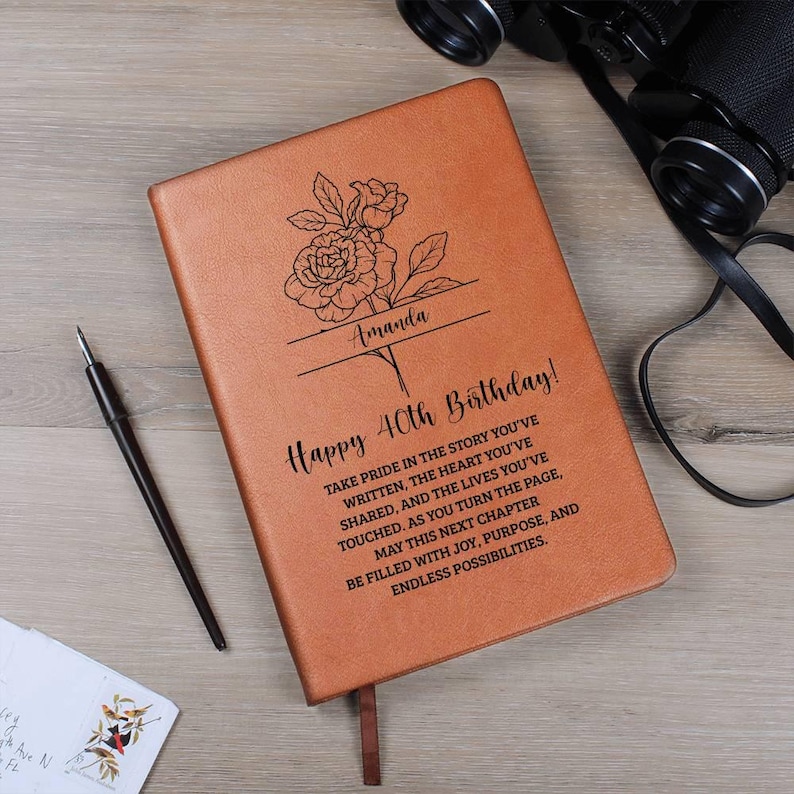 Amanda
Happy 40th Birthday!
TAKE PRIDE IN THE STORY YOU'VE
WRITTEN, THE HEART YOU'VE
SHARED, AND THE LIVES YOU'VE
TOUCHED. AS YOU TURN THE PAGE,
MAY THIS NEXT CHAPTER
BE FILLED WITH JOY, PURPOSE, AND
ENDLESS POSSIBILITIES.
ley
Ave N
FL